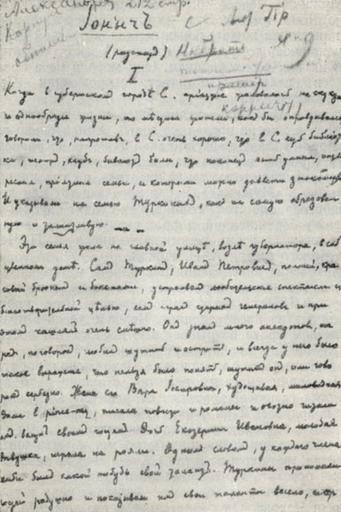 Александров 212 стр.
Іонычъ
(разсказъ)
I
Когда въ губернскомъ городѣ С. пріѣзжіе жаловались на скуку
и однообразіе жизни, то мѣстные жители, какъ бы оправдываясь,
говорили, что, напротивъ, въ С. очень хорошо, что въ С. есть библіоте-
ка, театръ, клубъ, бываютъ балы, что наконецъ есть умныя, инте-
ресныя, пріятныя семьи, съ которыми можно завести знакомства.
И указывали на семью Туркиныхъ, какъ на самую образован-
ную и талантливую.
Эта семья жила на главной улицѣ, возлѣ губернатора, въ соб-
ственномъ домѣ. Самъ Туркинъ, Иванъ Петровичъ, полный, кра-
сивый брюнетъ съ бакенами, устраивалъ любительскіе спектакли съ
благотворительной цѣлью, самъ игралъ старыхъ генераловъ и при
этомъ кашлялъ очень смѣшно. Онъ зналъ много анекдотовъ, ша-
радъ, поговорокъ, любилъ шутить и острить, и всегда у него было
такое выраженіе, что нельзя было понять, шутитъ онъ, или гово-
ритъ серьезно. Жена его Вѣра Іосифовна, худощавая, миловидная
дама въ pince-nez, писала повѣсти и романы и охотно читала
ихъ вслухъ своимъ гостямъ. Дочь Екатерина Ивановна, молодая
дѣвушка, играла на рояли. Однимъ словомъ, у каждаго члена
семьи былъ какой нибудь свой талантъ. Туркины принимали
гостей радушно и показывали имъ свои таланты весело, съ сер-